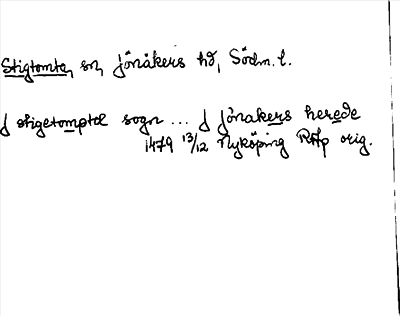 Stigtomta, sn, Jönåkers hd, Södm. l.
J stigetomptæ sogn ... J Jönakers herede
1479 13/12 Nyköping RAp orig.